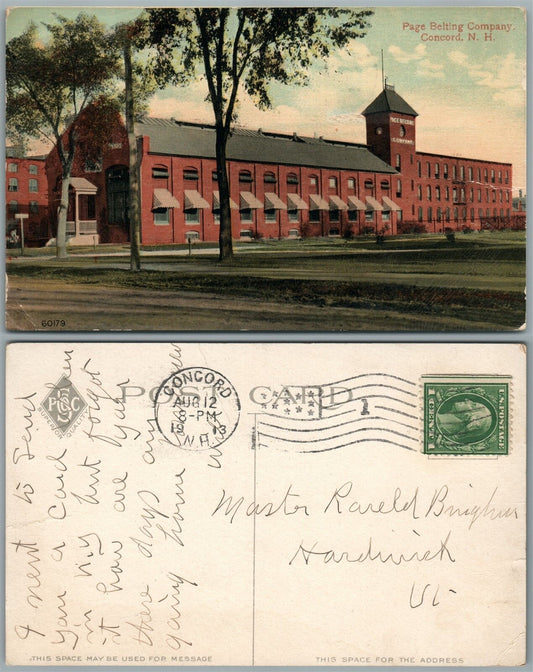 Page Belting Company.
Concord, N. H.
PAGE BELTING
COMPANY
60179
POST CARD
CONCORD
AUG 12
8-PM
1913
N.H.
1
U.S. POSTAGE
I ment to send
you a card when
in N.Y. but forgot
it how are you
these days am
going home
Master Rareld Brigham
Hardwick
Vt
THIS SPACE MAY BE USED FOR MESSAGE
THIS SPACE FOR THE ADDRESS